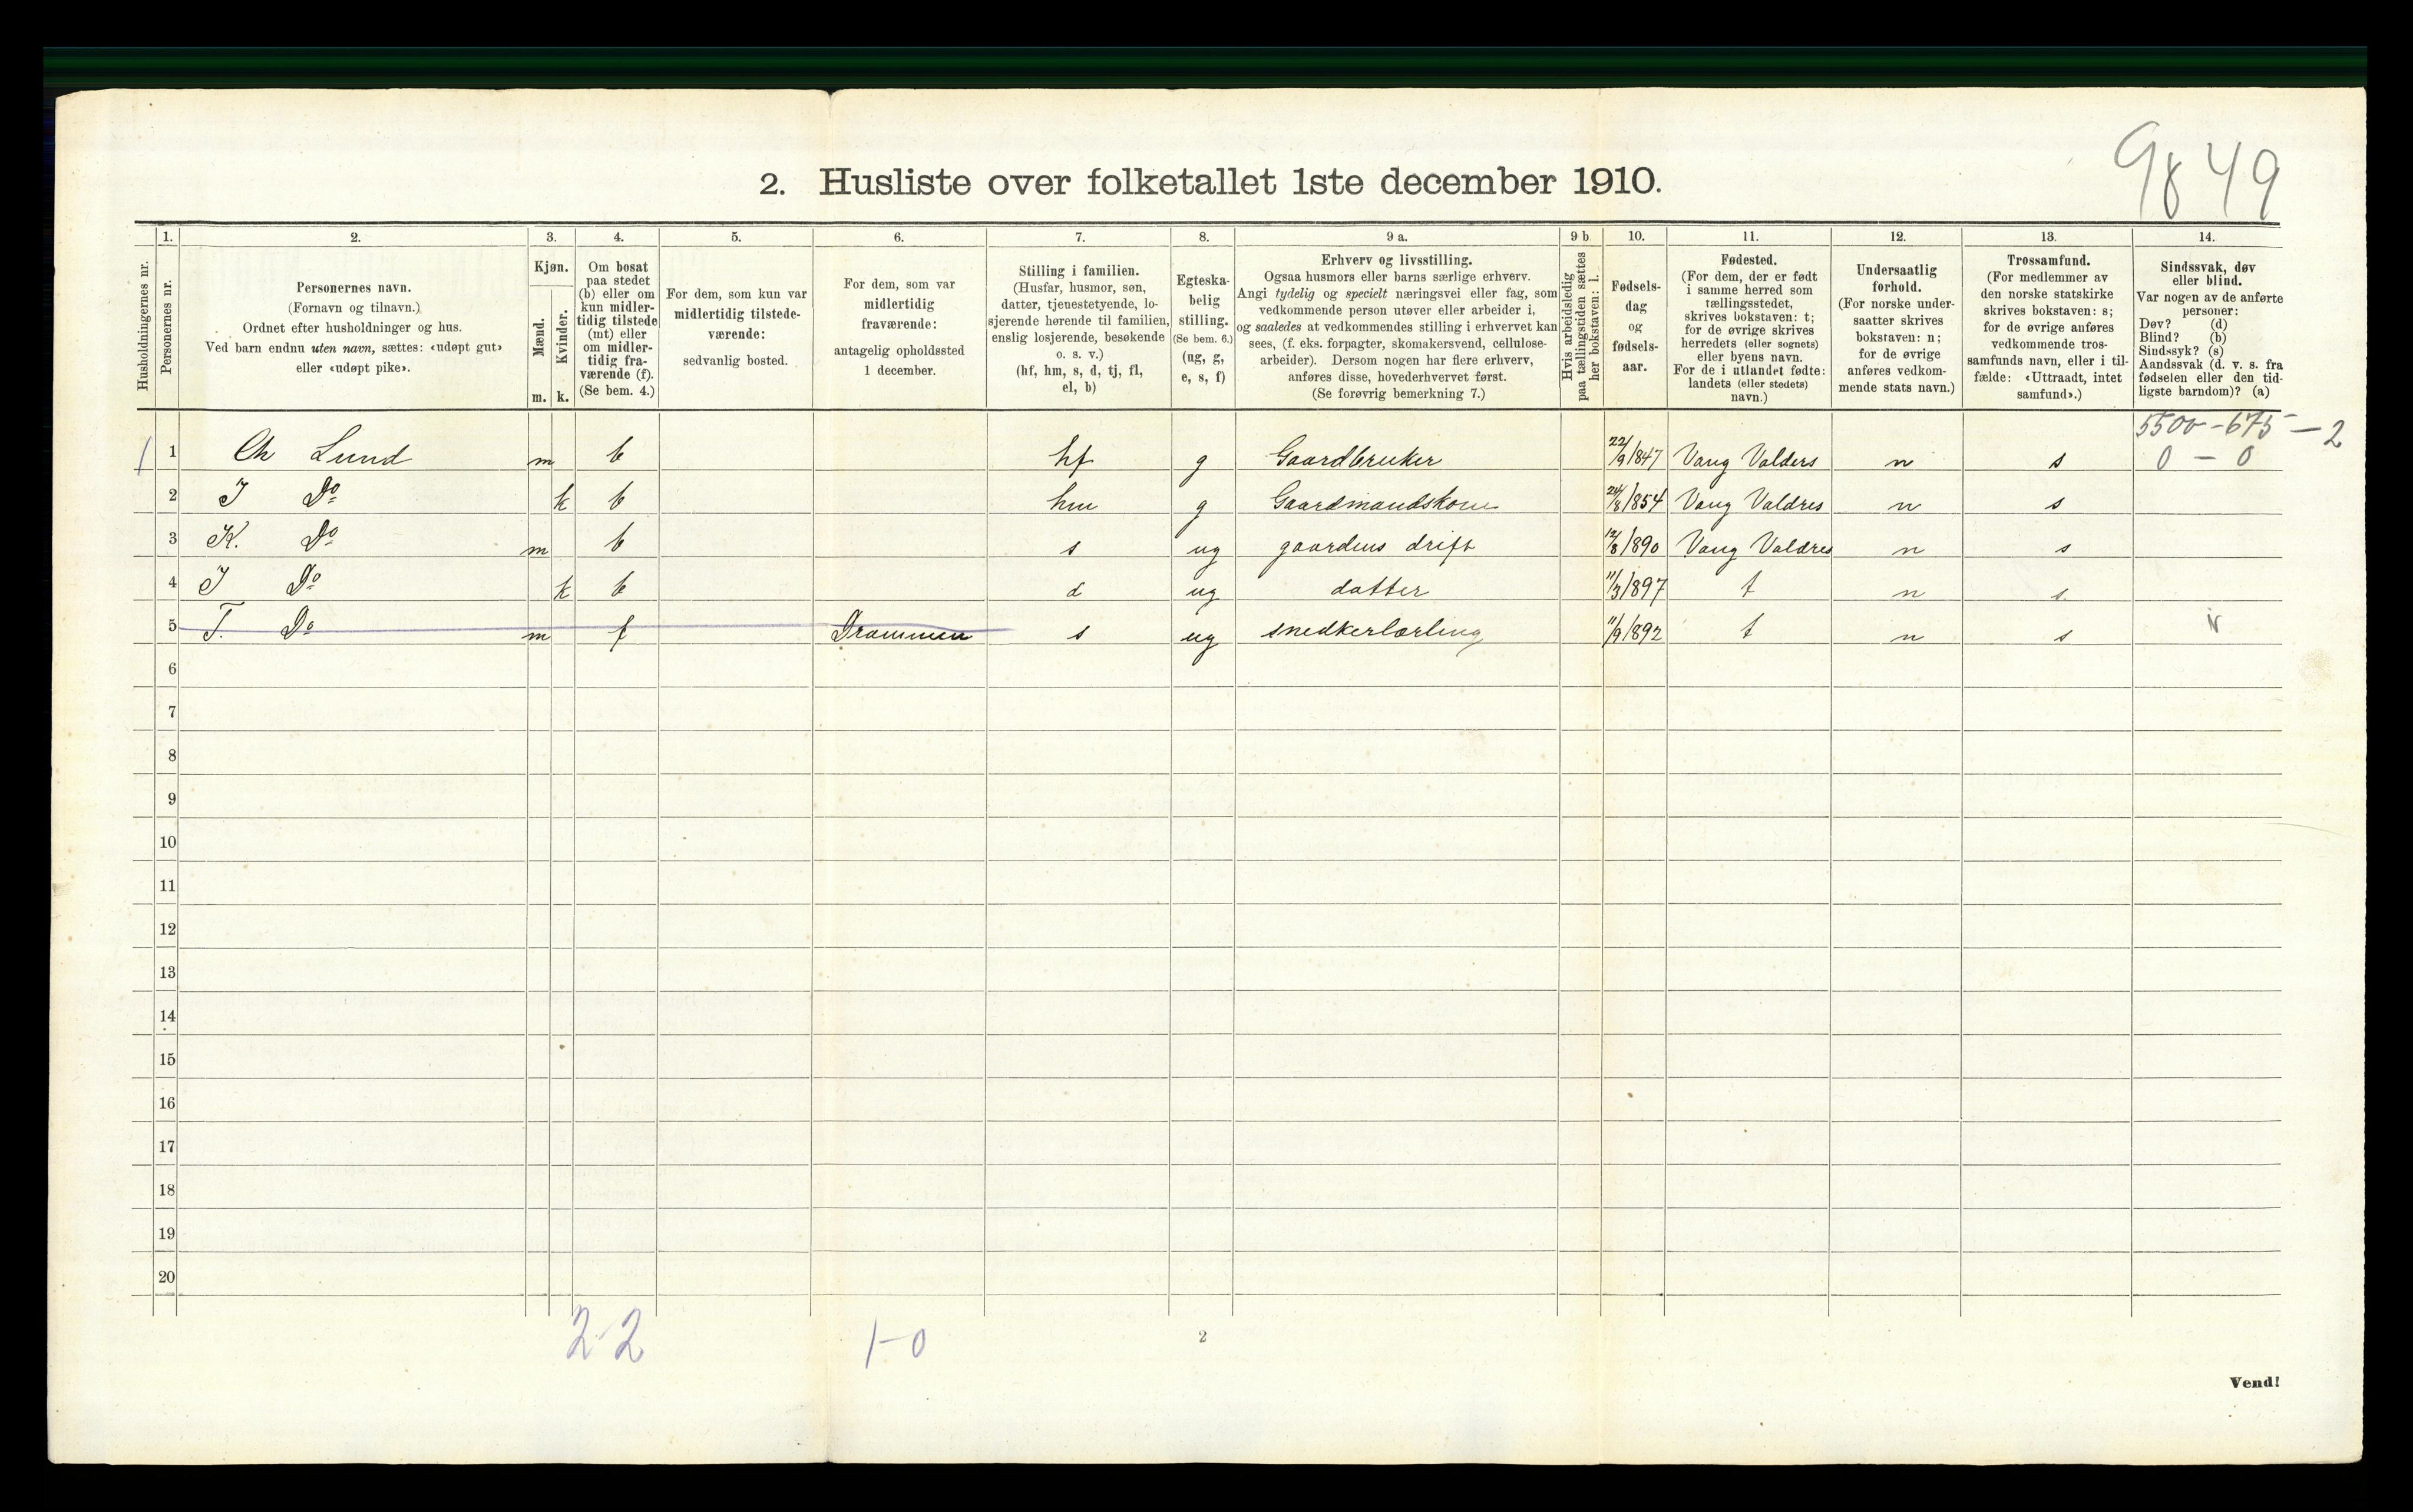 9849
2. Husliste over folketallet 1ste december 1910.
1. 2. 3. 4. 5. 6. 7. 8. 9 a. 9 b 10. 11. 12. 13. 14.
Husholdningernes nr.
Personernes nr.
Personernes navn.
(Fornavn og tilnavn.)
Ordnet efter husholdninger og hus.
Ved barn endnu uten navn, sættes: «udøpt gut»
eller «udøpt pike».
Kjøn.
Mænd.
Kvinder.
m. k.
Om bosat
paa stedet
(b) eller om
kun midler-
tidig tilstede
(mt) eller
om midler-
tidig fra-
værende (f).
(Se bem. 4.)
For dem, som kun var
midlertidig tilstede-
værende:
sedvanlig bosted.
For dem, som var
midlertidig
fraværende:
antagelig opholdssted
1 december.
Stilling i familien.
(Husfar, husmor, søn,
datter, tjenestetyende, lo-
sjerende hørende til familien,
enslig losjerende, besøkende
o. s. v.)
(hf, hm, s, d, tj, fl,
el, b)
Egteska-
belig
stilling.
(Se bem. 6.)
(ug, g,
e, s, f)
Erhverv og livsstilling.
Ogsaa husmors eller barns særlige erhverv.
Angi tydelig og specielt næringsvei eller fag, som
vedkommende person utøver eller arbeider i,
og saaledes at vedkommendes stilling i erhvervet kan
sees, (f. eks. forpagter, skomakersvend, cellulose-
arbeider). Dersom nogen har flere erhverv,
anføres disse, hovederhvervet først.
(Se forøvrig bemerkning 7.)
Hvis arbeidsledig
paa tællingstiden sættes
her bokstaven: l.
Fødsels-
dag
og
fødsels-
aar.
Fødested.
(For dem, der er født
i samme herred som
tællingsstedet,
skrives bokstaven: t;
for de øvrige skrives
herredets (eller sognets)
eller byens navn.
For de i utlandet fødte:
landets (eller stedets)
navn.)
Undersaatlig
forhold.
(For norske under-
saatter skrives
bokstaven: n;
for de øvrige
anføres vedkom-
mende stats navn.)
Trossamfund.
(For medlemmer av
den norske statskirke
skrives bokstaven: s;
for de øvrige anføres
vedkommende tros-
samfunds navn, eller i til-
fælde: «Uttraadt, intet
samfund».)
Sindssvak, døv
eller blind.
Var nogen av de anførte
personer:
Døv? (d)
Blind? (b)
Sindssyk? (s)
Aandssvak (d. v. s. fra
fødselen eller den tid-
ligste barndom)? (a)
5500 - 675 - 2
1 1 Ch Lund m b hf g Gaardbruker 22/9 1847 Vang Valders n s 0 - 0
2 J Do k b hm g Gaardmandskone 24/8 1854 Vang Valdres n s
3 K. Do m b s ug gaardens drift 12/8 1890 Vang Valdres n s
4 J Do k b d ug datter 11/3 1897 t n s
5 T. Do m f Drammen s ug snedkerlærling 11/9 1892 t n s
6
7
8
9
10
11
12
13
14
15
16
17
18
19
20
2-2 1-0 2
Vend!